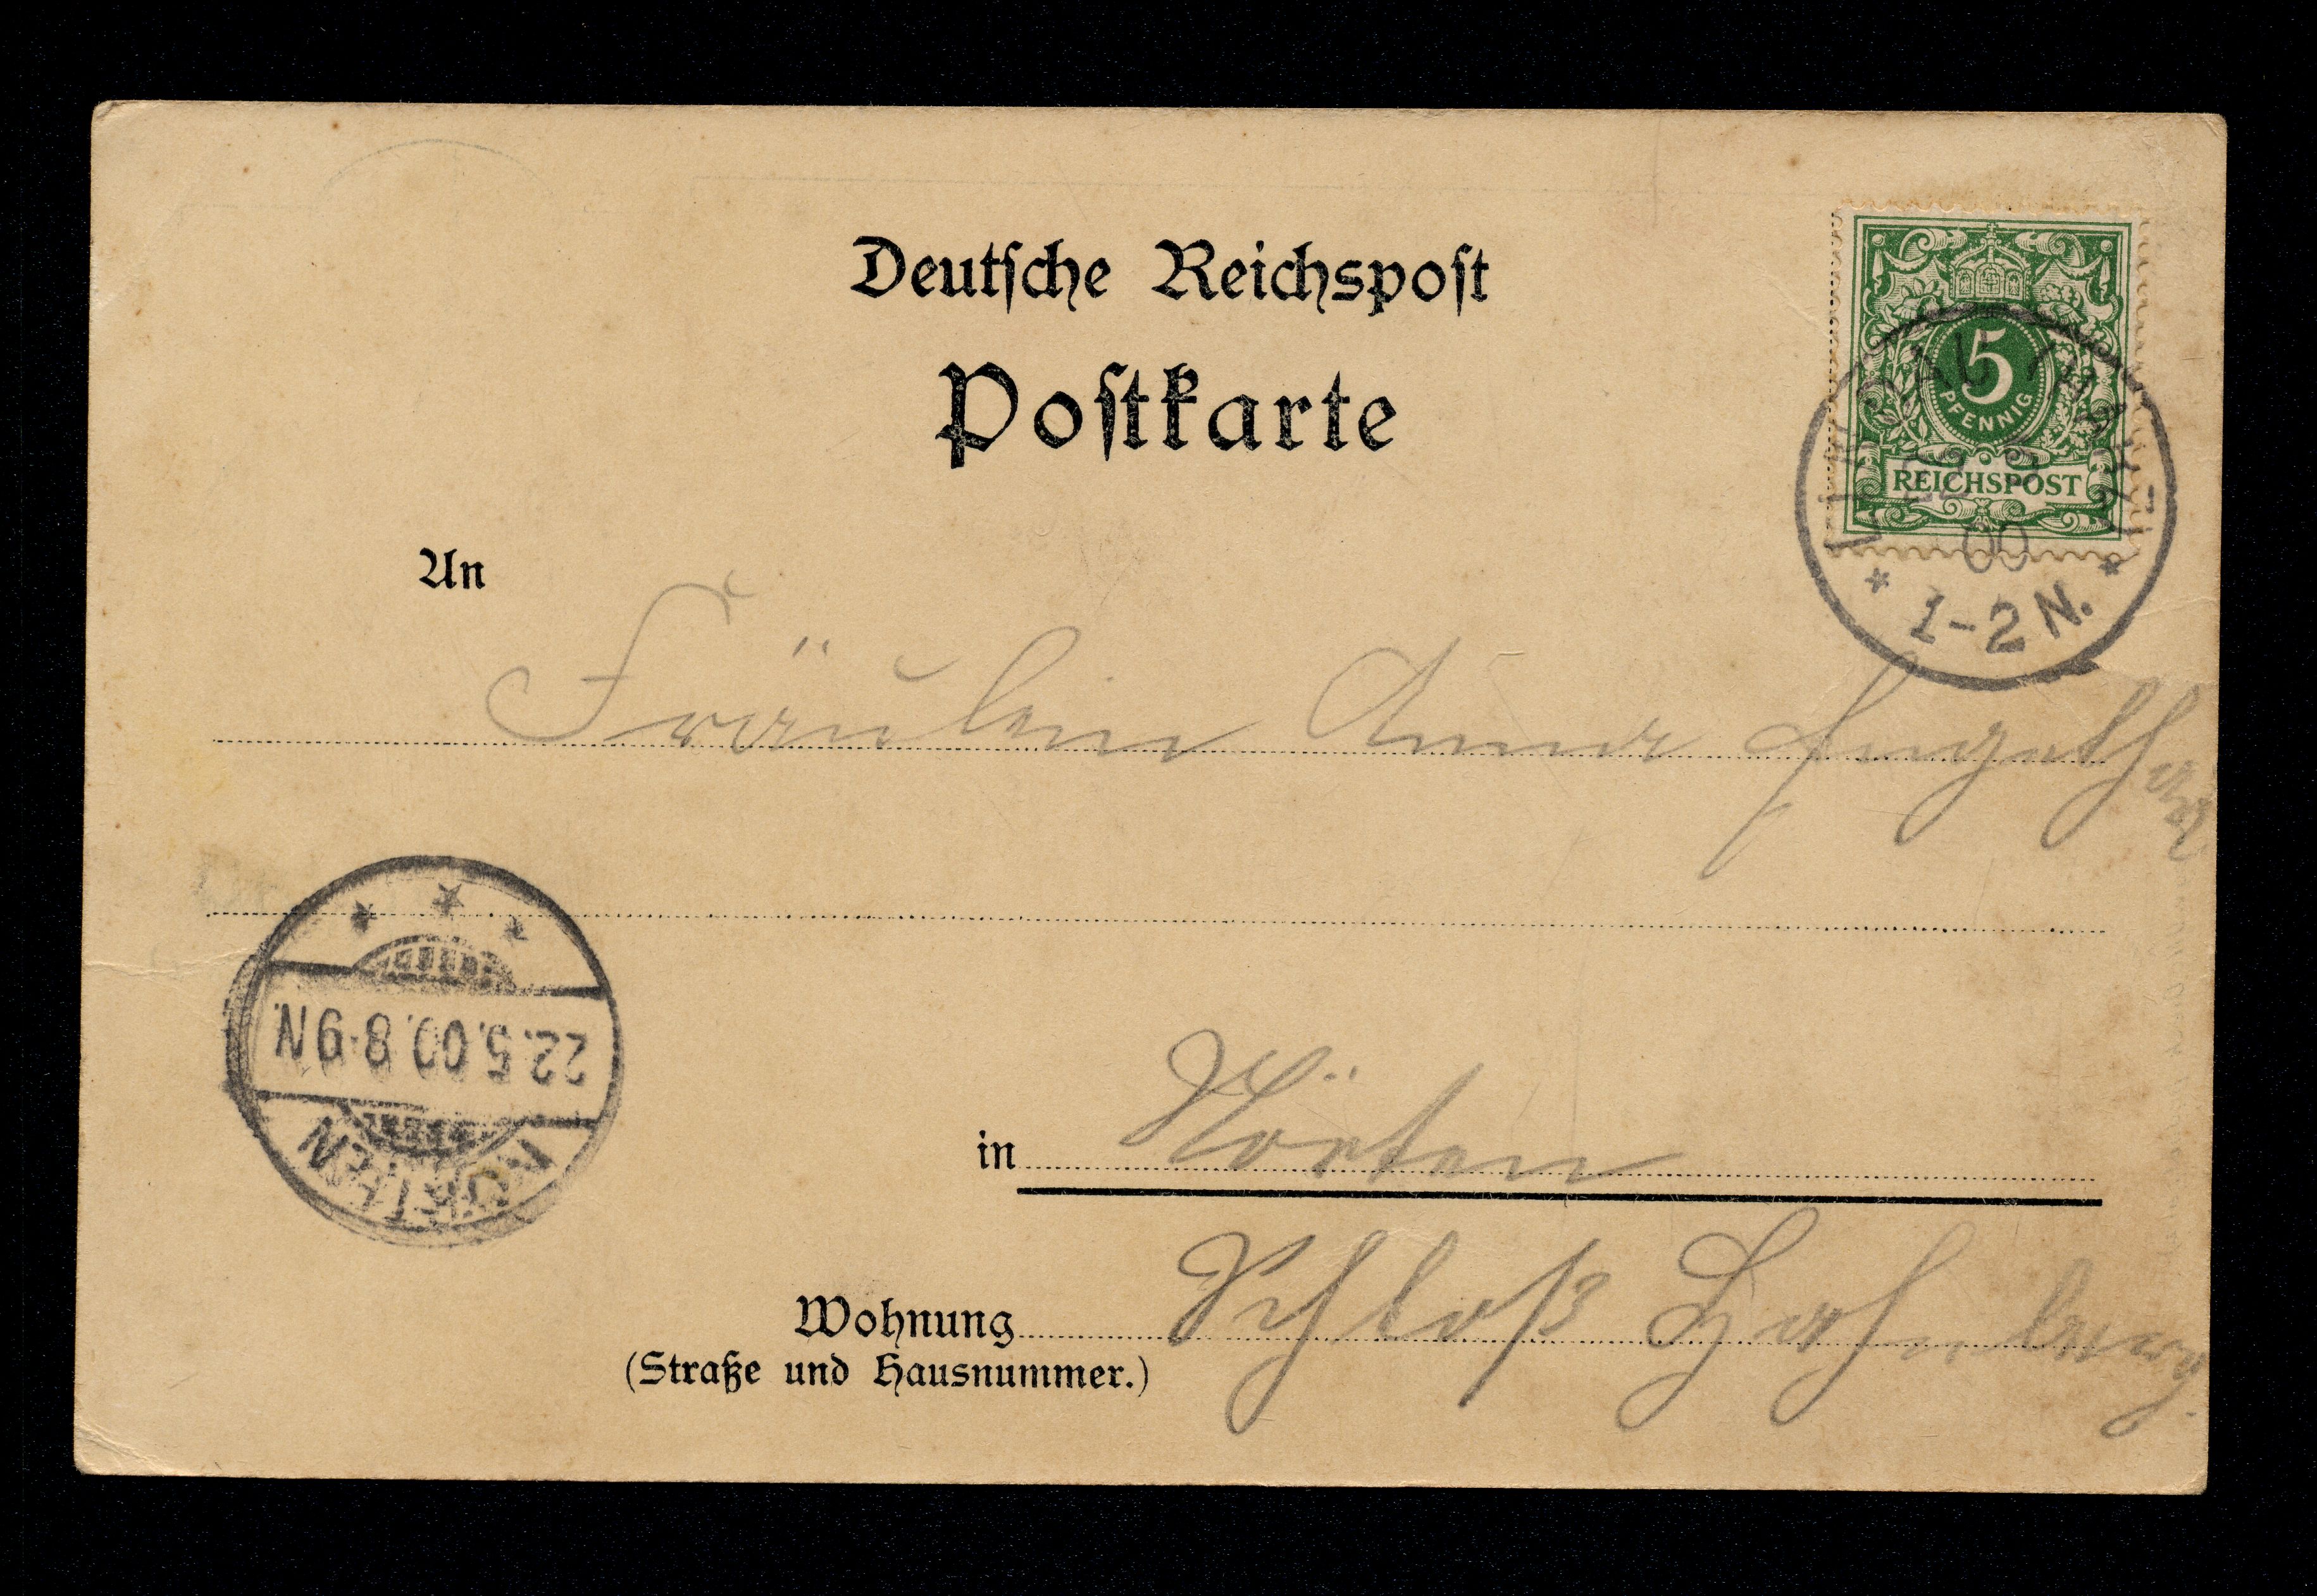 Deutsche Reichspost
Postkarte
5
PFENNIG
REICHSPOST
22
5
00
* 1-2 N. *
An
Fräulein Anna
22.5.00.8-9N.
NÖRTEN
in Nörten
Wohnung Schloß Hardenberg
(Straße und Hausnummer.)